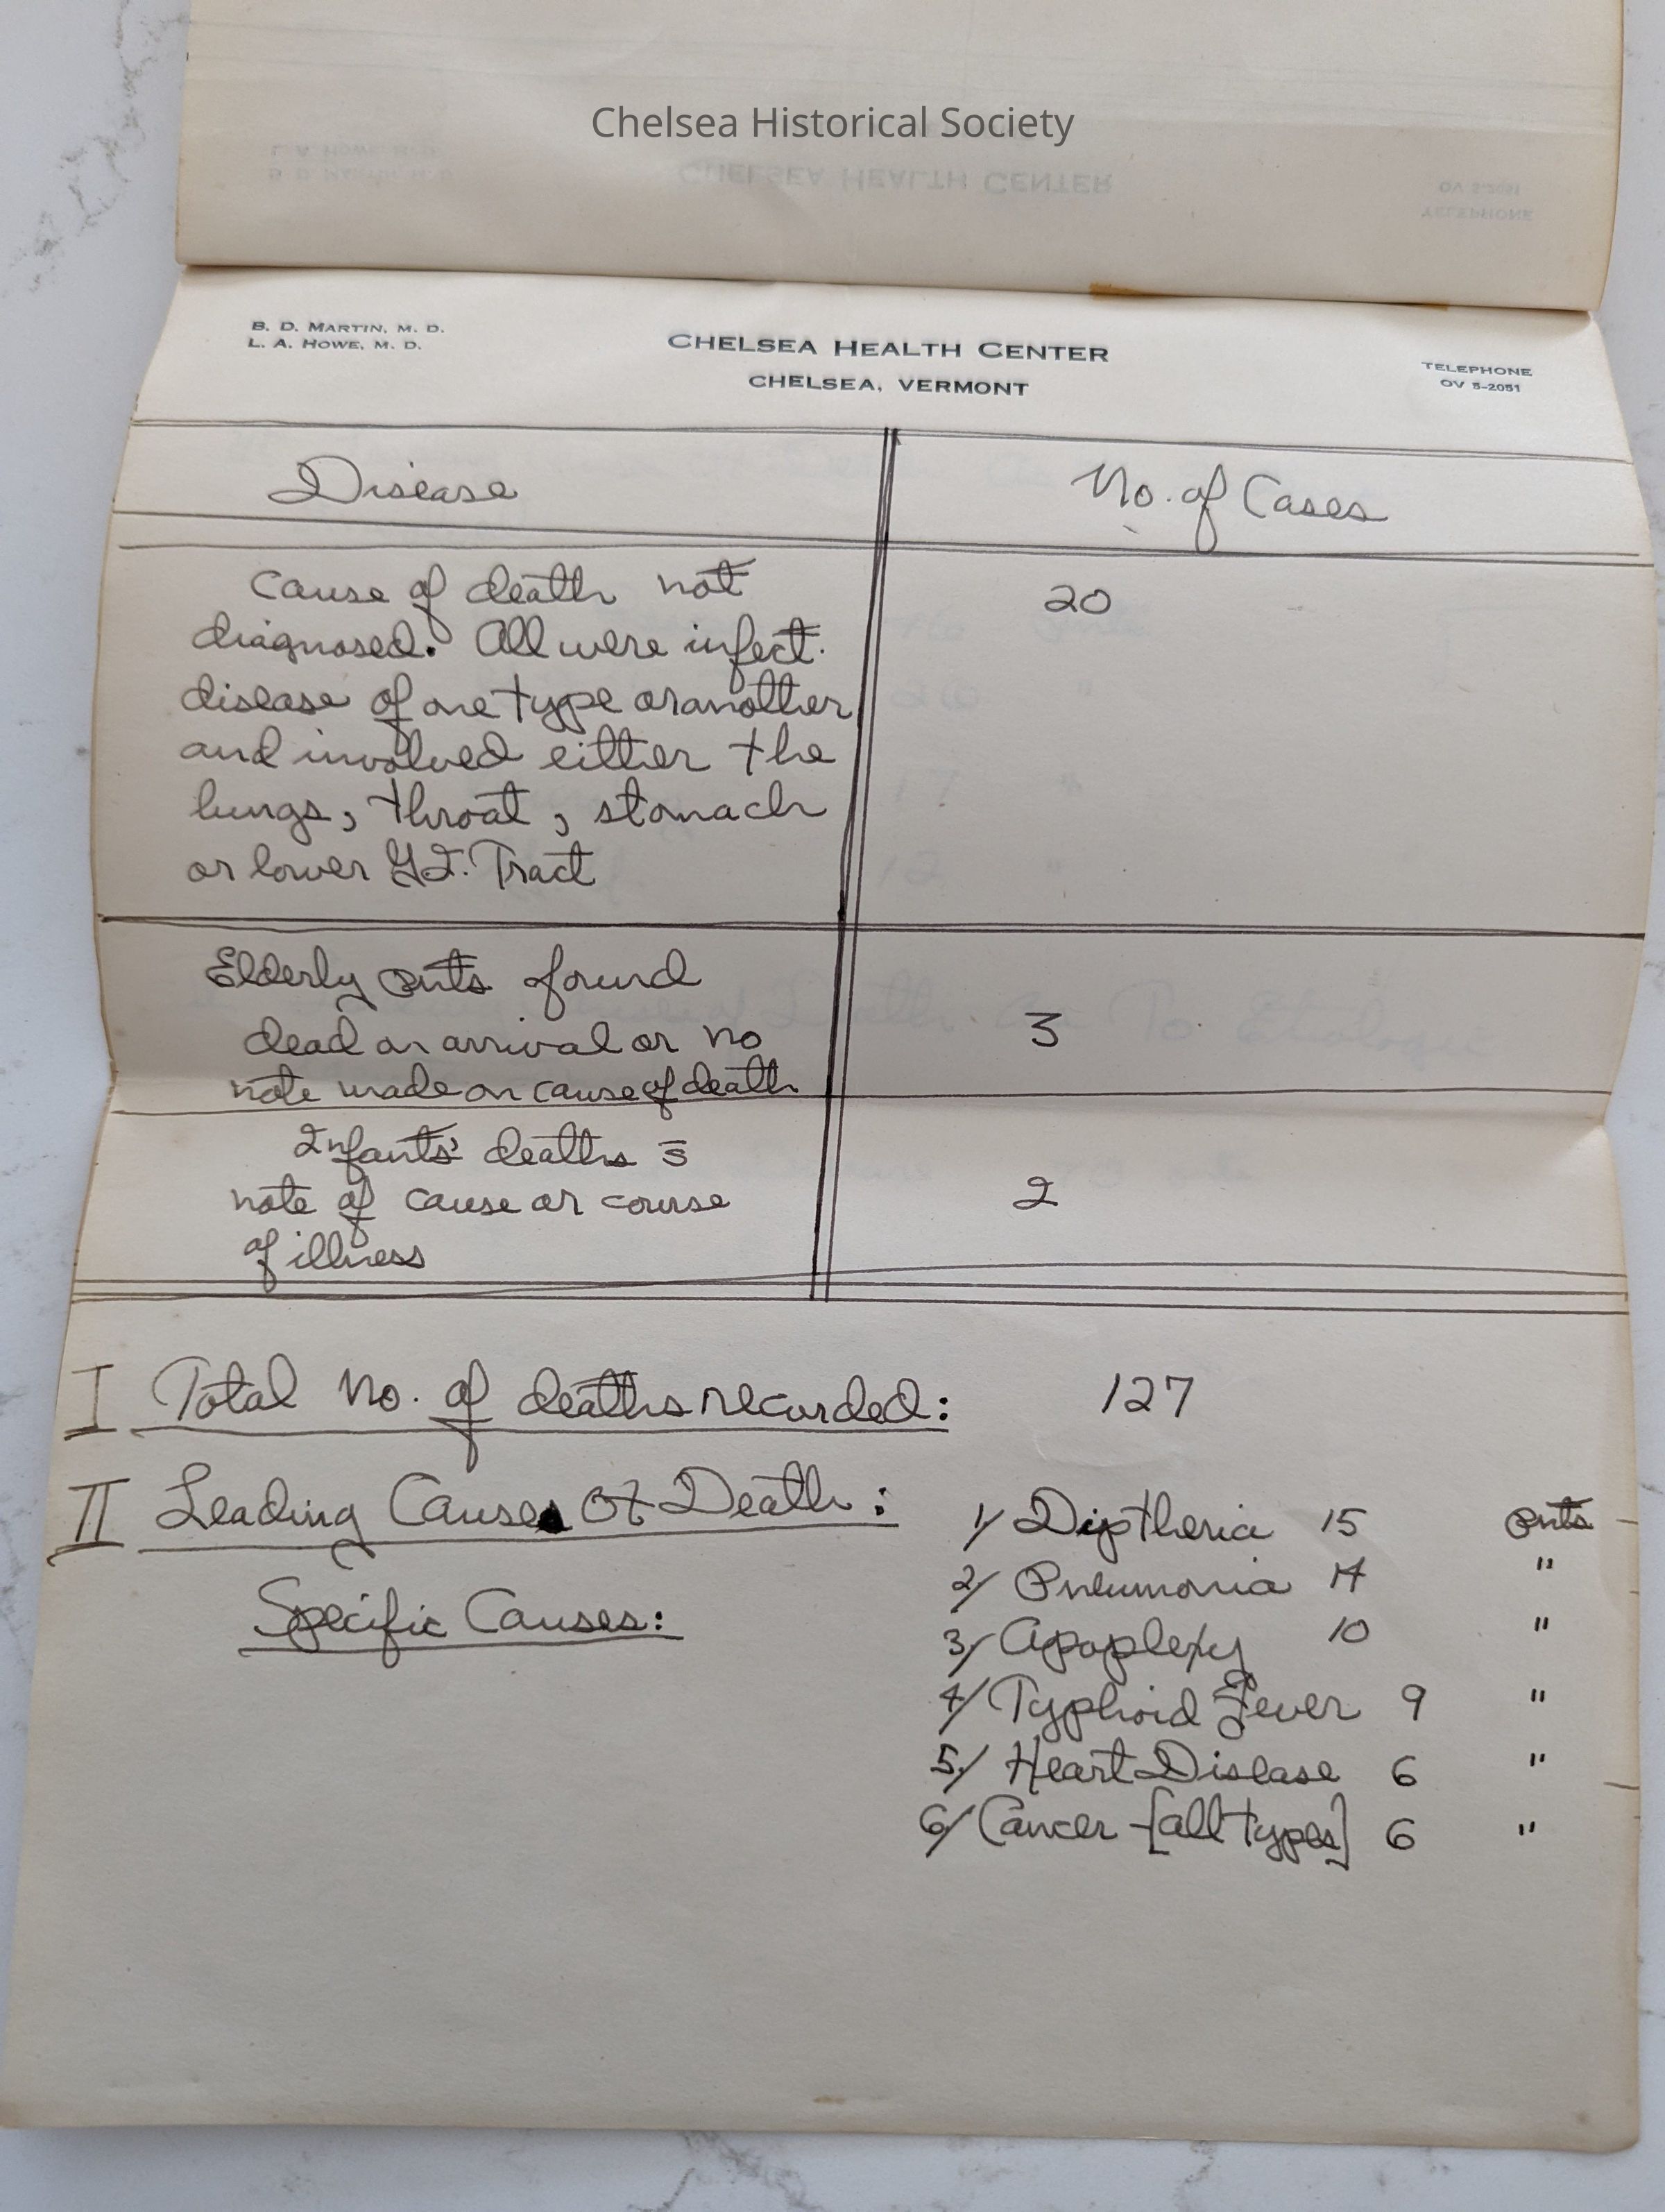 Chelsea Historical Society
B. D. MARTIN, M. D.
L. A. HOWE, M. D.
CHELSEA HEALTH CENTER
CHELSEA, VERMONT
TELEPHONE
OV 5-2051
Disease No. of Cases
Cause of death not 20
diagnosed. All were infect.
disease of one type or another
and involved either the
lungs, throat, stomach
or lower G.I. Tract
Elderly pnts found
dead on arrival or no 3
note made on cause of death
Infants' deaths s̄
note of cause or course 2
of illness
I Total No. of deaths recorded: 127
II Leading Causes Of Death: 1/ Diptheria 15 pnts
2/ Pneumonia 14 "
Specific Causes: 3/ Apoplexy 10 "
4/ Typhoid Fever 9 "
5/ Heart Disease 6 "
6/ Cancer - [all types] 6 "